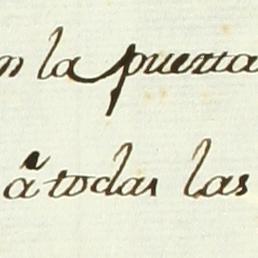 n la puerta
à todas las